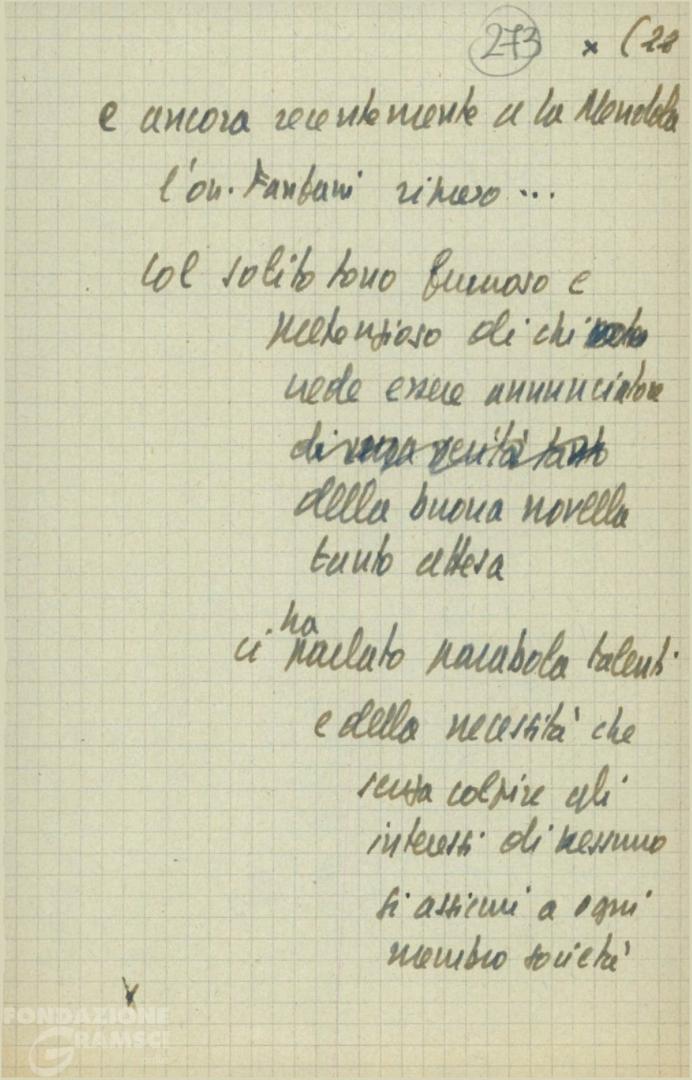 273 x (28
e ancora recentemente a la Mendola
l'on. Fanfani rimeso ...
col solito tono fumoso e
pretenzioso di chi
crede essere annunciatore
di verità tanto
della buona novella
tanto attesa
ha
ci parlato parabola talenti
e della necessità che
senza colpire gli
interessi di nessuno
si assicuri a ogni
membro società
x
FONDAZIONE
GRAMSCI